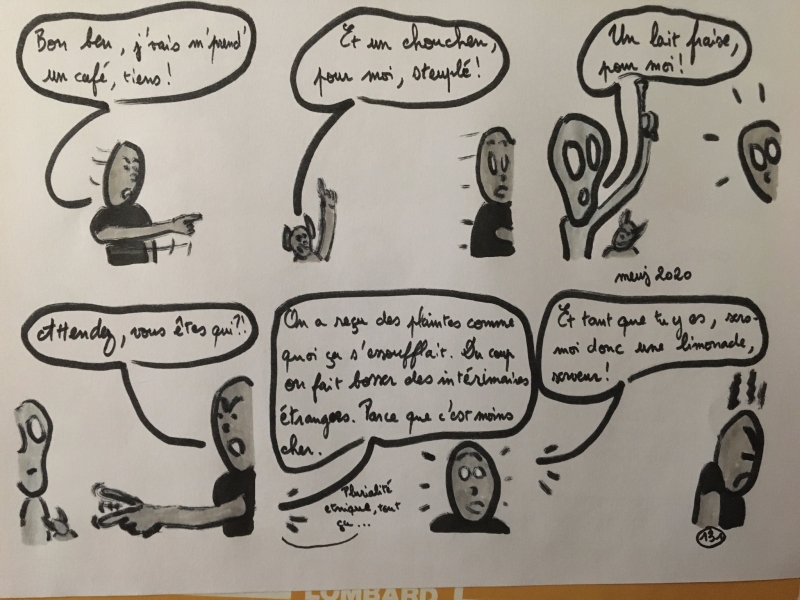 Bon ben, j'vais m'prend'
un café, tiens !
Et un chouchen,
pour moi, steuplé !
Un lait fraise,
pour moi !
meuj 2020
Attendez, vous êtes qui ?!
On a reçu des plaintes comme
quoi ça s'essoufflait. Du coup
on fait bosser des intérimaires
étrangers. Parce que c'est moins
cher.
Pluralité
ethnique, tout
ça ...
Et tant que tu y es, sers-
moi donc une limonade,
serveur !
131
LOMBARD